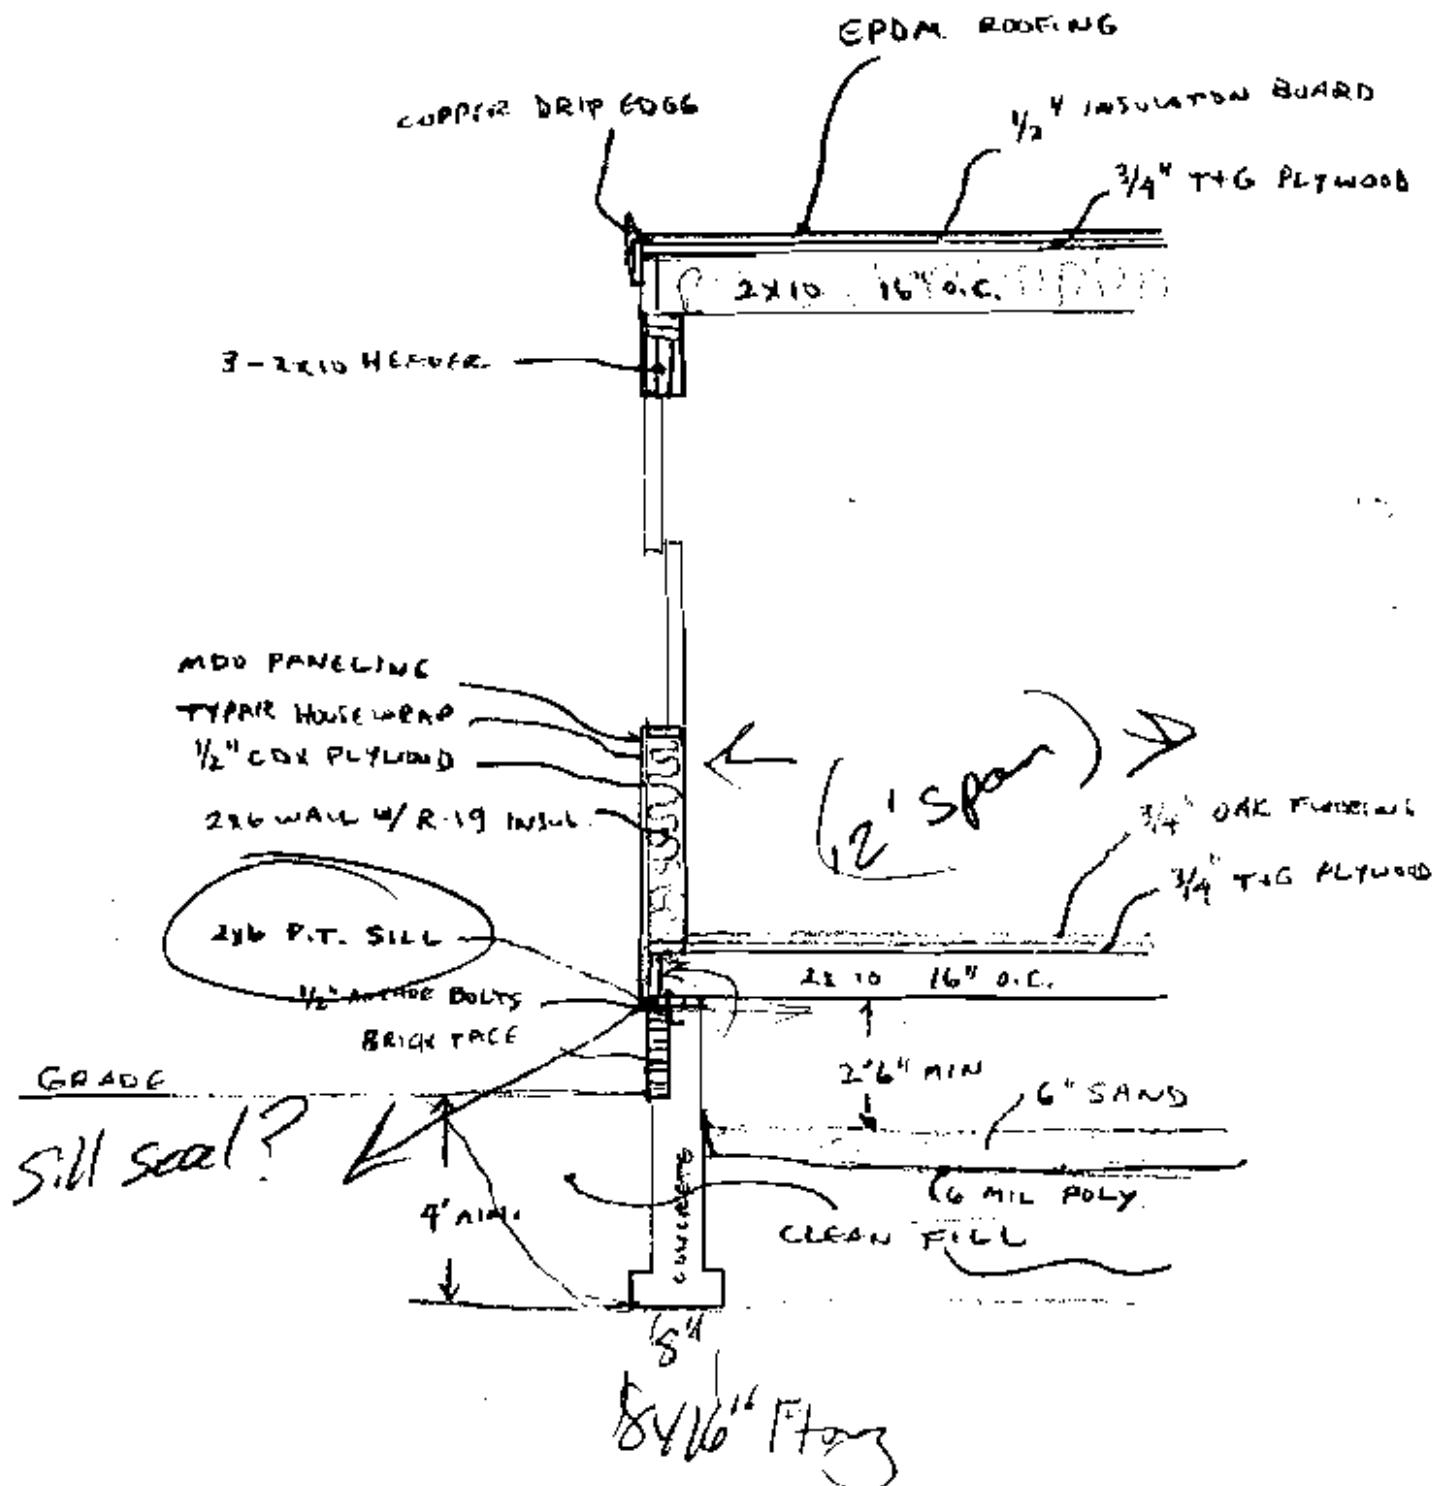 EPDM ROOFING
COPPER DRIP EDGE
1/2" INSULATION BOARD
3/4" T+G PLYWOOD
2X10 16" O.C.
3-2x10 HEADER
MDO PANELING
TYPAR HOUSEWRAP
1/2" CDX PLYWOOD
2x6 WALL W/ R-19 INSUL.
12' Span
3/4" OAK FLOORING
3/4" T+G PLYWOOD
2x6 P.T. SILL
2x10 16" O.C.
1/2" ANCHOR BOLTS
BRICK FACE
GRADE
2'6" MIN
6" SAND
Sill seal?
6 MIL POLY.
4' MIN.
CONCRETE
CLEAN FILL
8"
8x16" Ftng